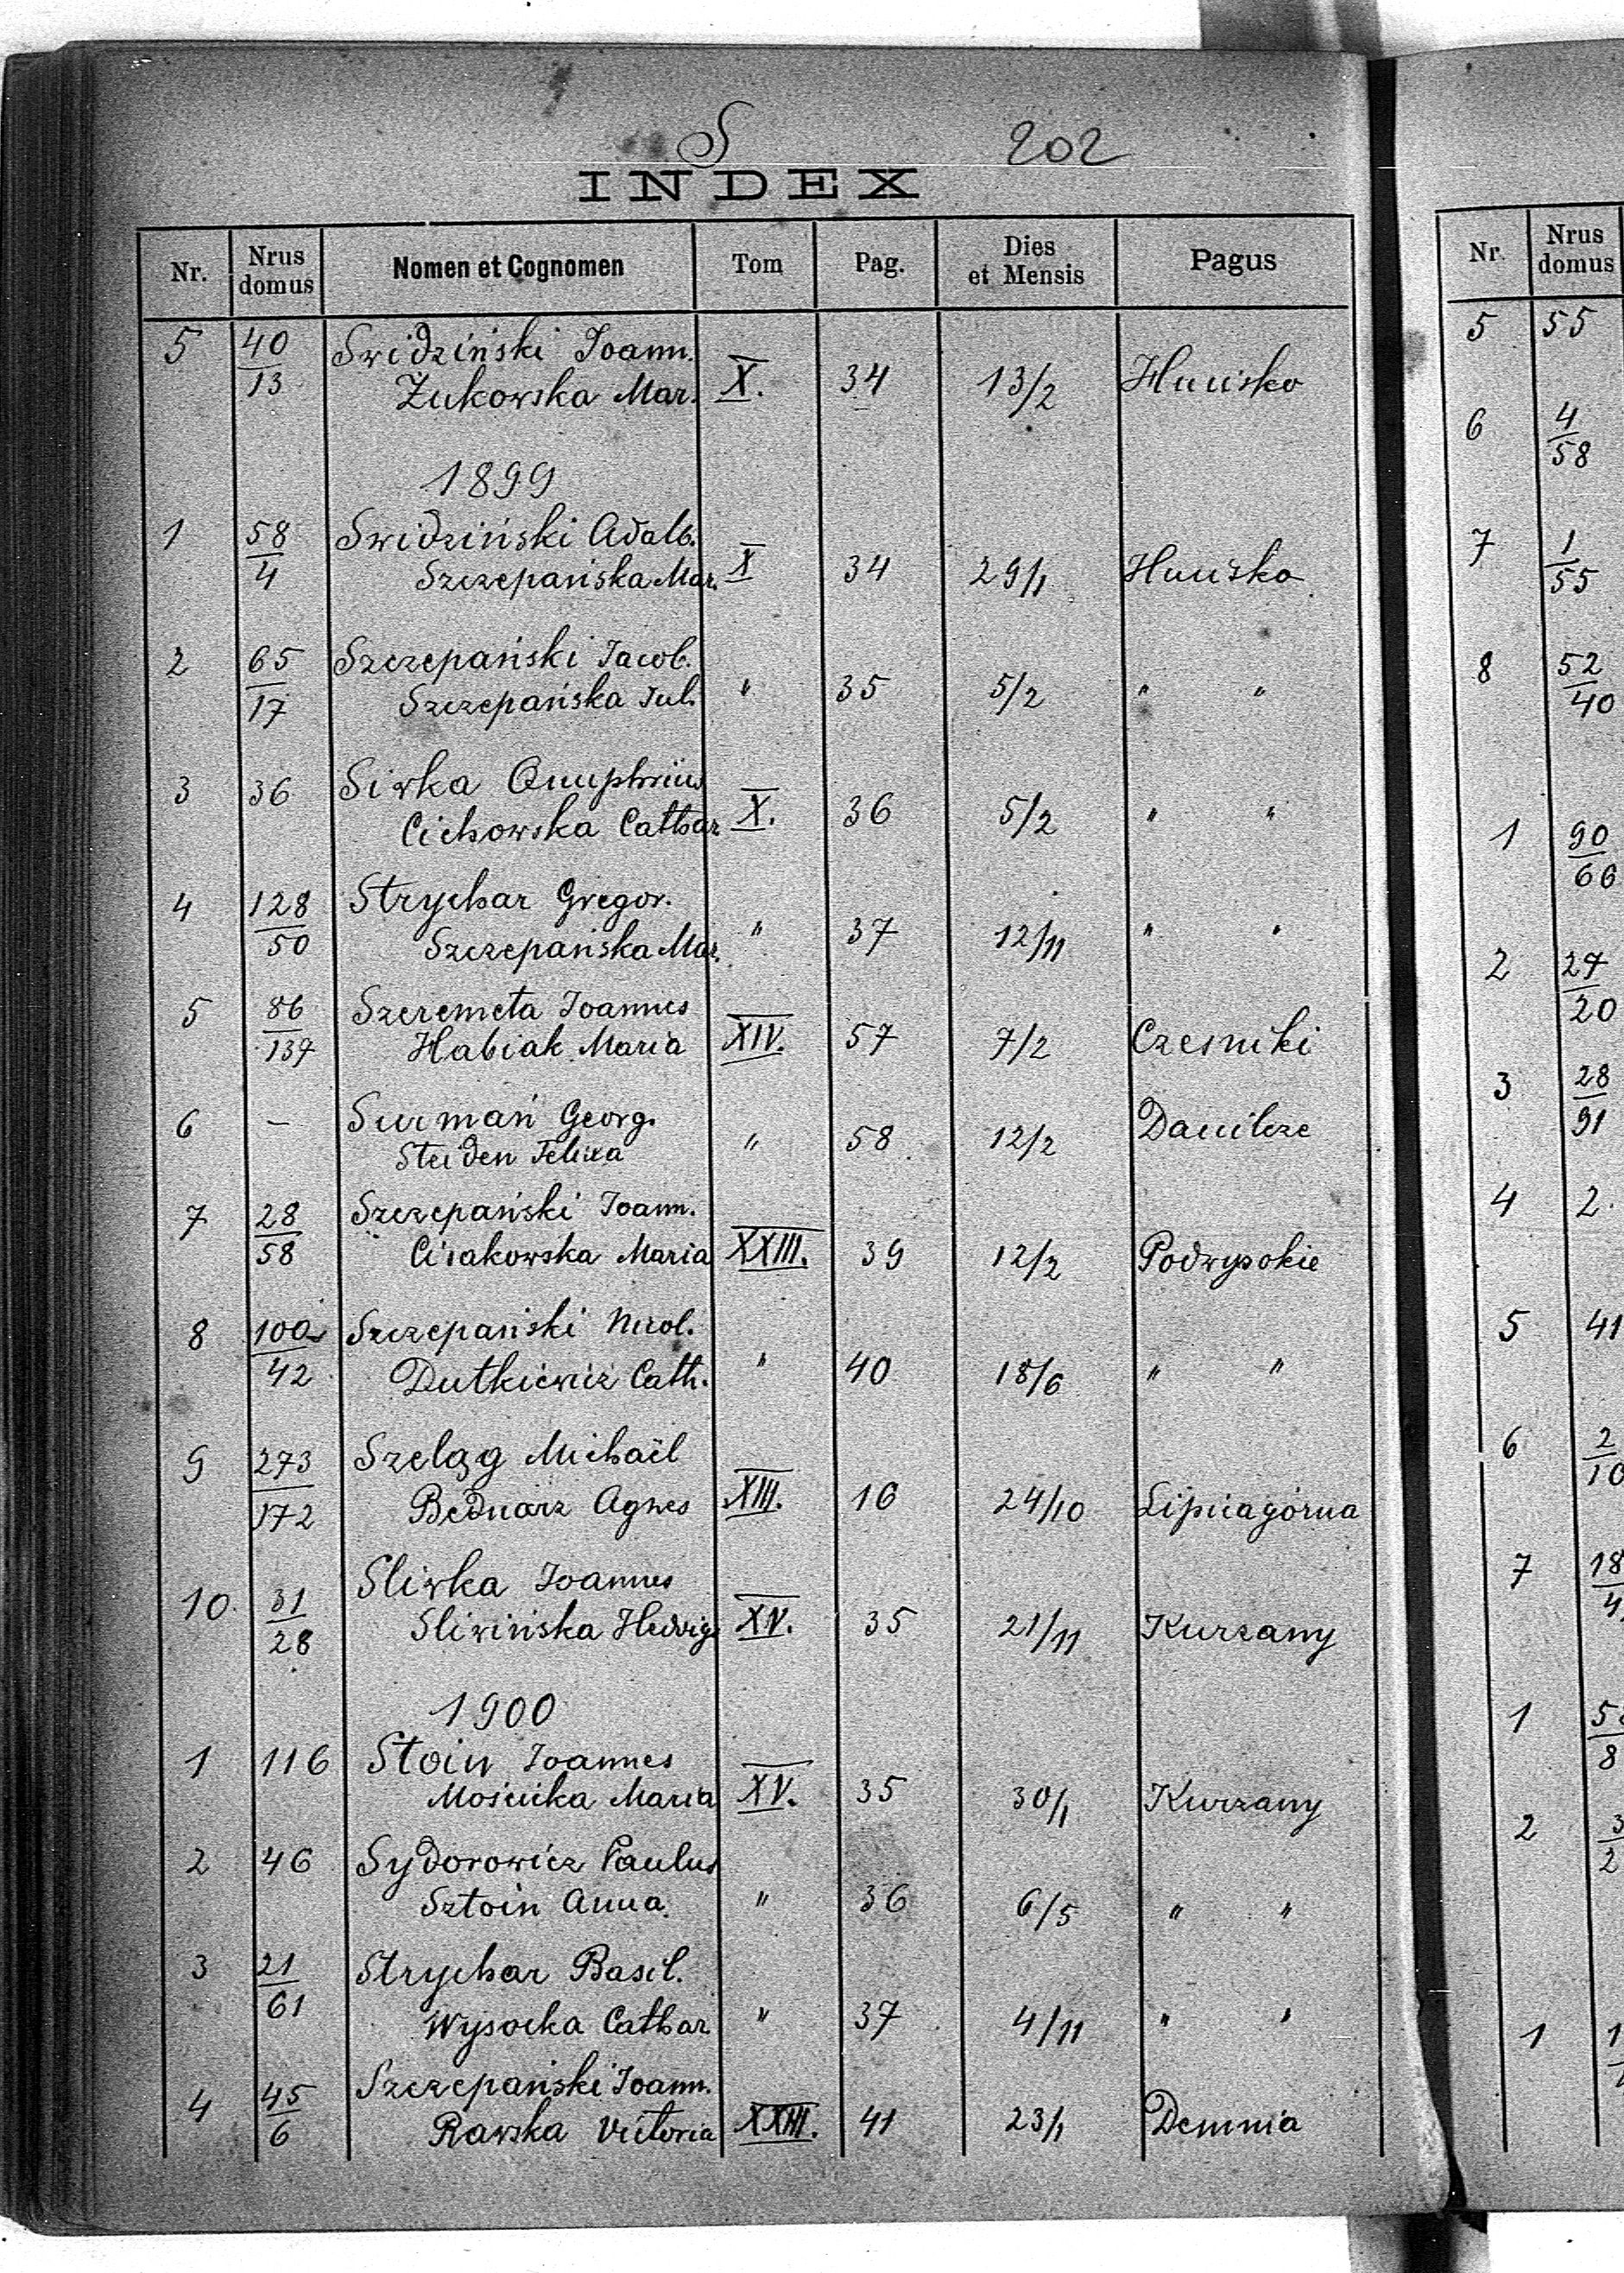 S 202
INDEX
Nr. Nrus domus Nomen et Cognomen Tom Pag. Dies et Mensis Pagus
5 40/13 Swidziński Joann.
Żukowska Mar. X. 34 13/2 Hucisko
1899
1 58/4 Swidziński Adalb.
Szczepańska Mar. X 34 29/1 Hucisko
2 65/17 Szczepański Jacob.
Szczepańska Jul. " 35 5/2 " "
3 36 Siwka Onuphrius
Cichowska Cathar X. 36 5/2 " "
4 128/50 Strychar Gregor.
Szczepańska Mar. " 37 12/11 " "
5 86/137 Szeremeta Joannes
Habiak Maria XIV. 57 7/2 Czesniki
6 – Surmań Georg.
Steiden Felixa " 58 12/2 Danilcze
7 28/58 Szczepański Joann.
Cisakowska Maria XXIII. 39 12/2 Podwysokie
8 100/42 Szczepański Nicol.
Dutkiewicz Cath. " 40 18/6 " "
9 273/172 Szeląg Michaël
Bednarz Agnes XIII. 16 24/10 Lipicagórna
10 31/28 Sliwka Joannes
Sliwińska Hedwig XV. 35 21/11 Kurzany
1900
1 116 Stoin Joannes
Mościcka Maria XV. 35 30/1 Kurzany
2 46 Sydorowicz Paulus
Sztoin Anna. " 36 6/5 " "
3 21/61 Strychar Basil.
Wysocka Cathar " 37 4/11 " "
4 45/6 Szczepański Joann.
Rawska Victoria XXIII. 41 23/1 Demnia
Nr. Nrus domus
5 55
6 4/58
7 1/55
8 52/40
1 90/66
2 27/20
3 28/91
4 2.
5 41
6 2/10
7 18/4
1
2
1